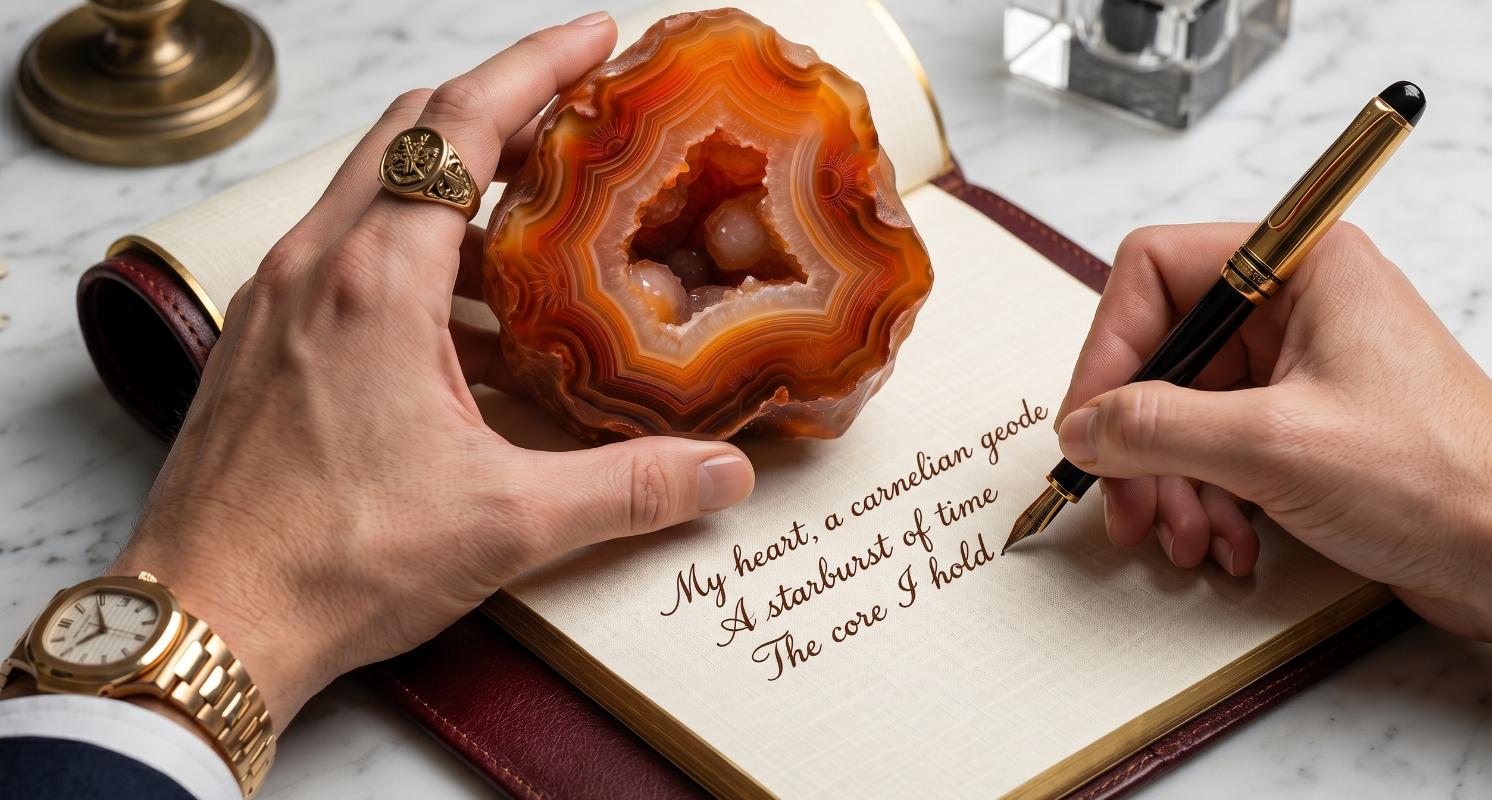 My heart, a carnelian geode
A starburst of time
The core I hold